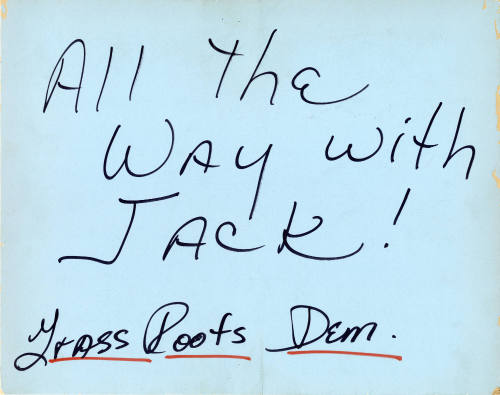 All The
Way with
Jack!
Grass Roots Dem.